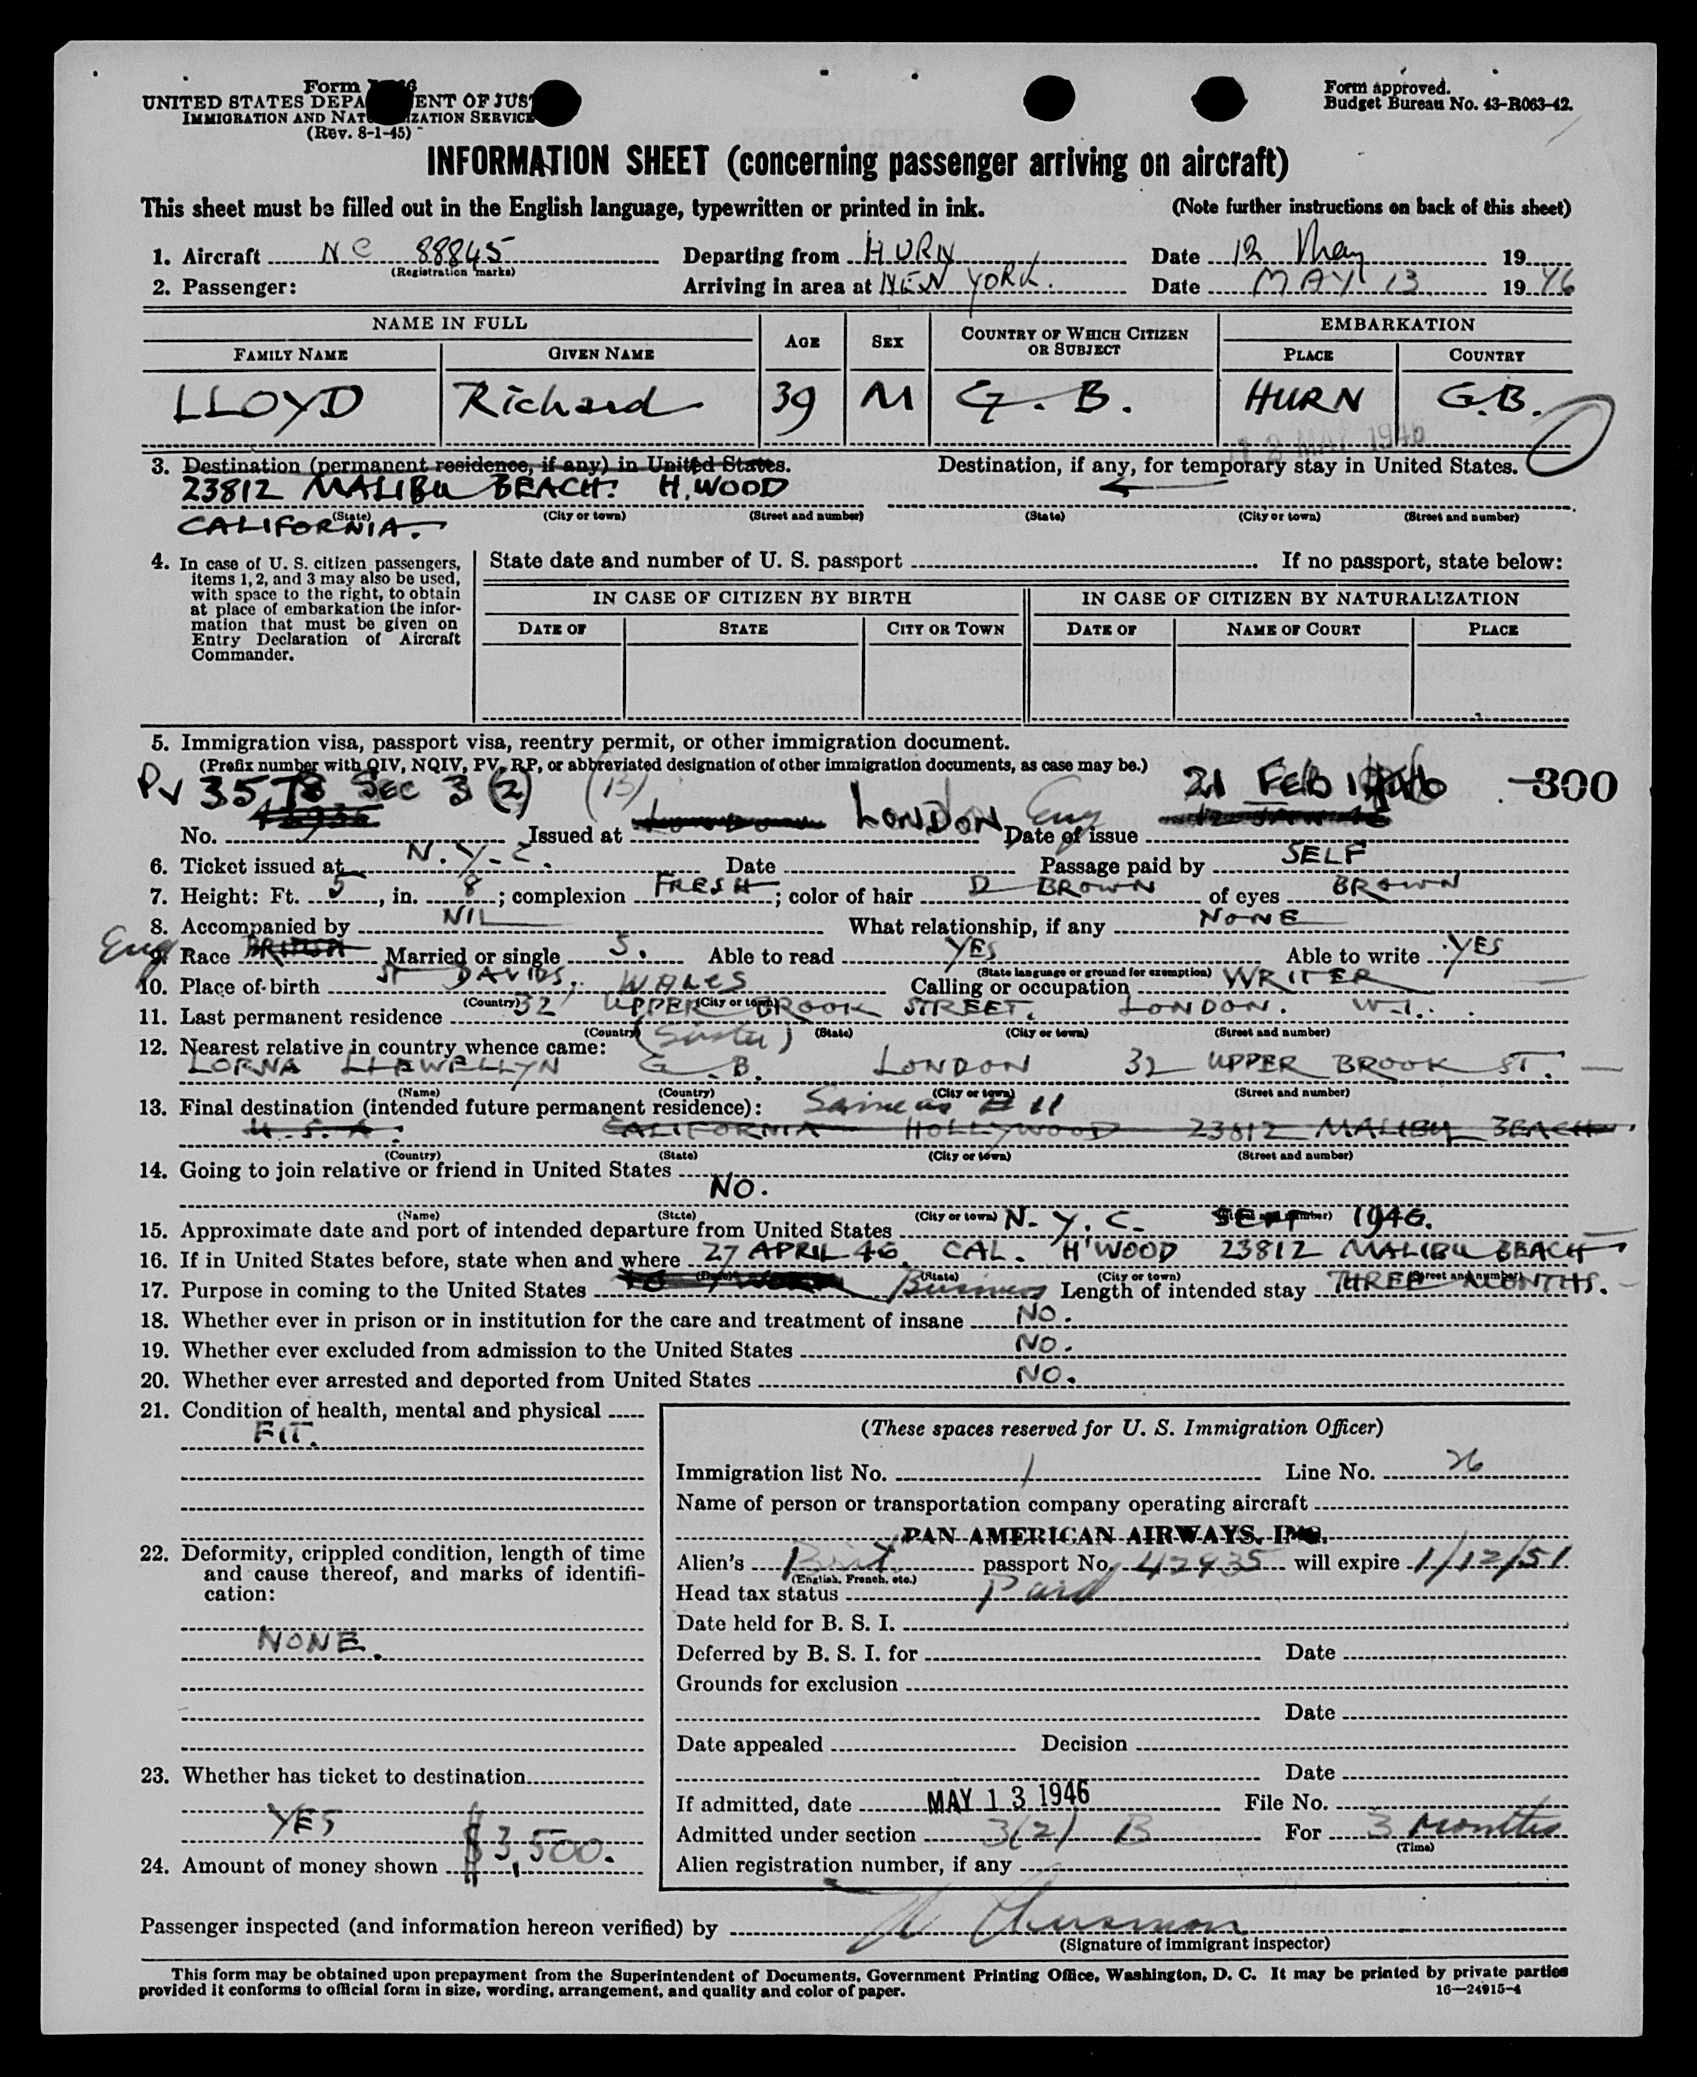 Form
UNITED STATES DEPA ENT OF JUS
IMMIGRATION AND NAT ZATION SERVICE
(Rev. 8-1-45)
Form approved.
Budget Bureau No. 43-R063-42.
INFORMATION SHEET (concerning passenger arriving on aircraft)
This sheet must be filled out in the English language, typewritten or printed in ink. (Note further instructions on back of this sheet)
1. Aircraft NC 88845 Departing from HURN Date 12 May 19
(Registration marks)
2. Passenger: Arriving in area at NEW YORK. Date MAY 13 1946
NAME IN FULL AGE SEX COUNTRY OF WHICH CITIZEN OR SUBJECT EMBARKATION
FAMILY NAME GIVEN NAME PLACE COUNTRY
LLOYD Richard 39 M G.B. HURN G.B.
12 MAY 1946
3. Destination (permanent residence, if any) in United States. Destination, if any, for temporary stay in United States.
23812 MALIBU BEACH. H.WOOD
(State) (City or town) (Street and number) (State) (City or town) (Street and number)
CALIFORNIA.
4. In case of U. S. citizen passengers, items 1, 2, and 3 may also be used, with space to the right, to obtain at place of embarkation the information that must be given on Entry Declaration of Aircraft Commander.
State date and number of U. S. passport If no passport, state below:
IN CASE OF CITIZEN BY BIRTH IN CASE OF CITIZEN BY NATURALIZATION
DATE OF STATE CITY OR TOWN DATE OF NAME OF COURT PLACE
5. Immigration visa, passport visa, reentry permit, or other immigration document.
(Prefix number with QIV, NQIV, PV, RP, or abbreviated designation of other immigration documents, as case may be.)
PV 3578 SEC 3 (2) (B) LONDON Eng 21 FEB 1946 -300
No. Issued at Date of issue
6. Ticket issued at N.Y.C. Date Passage paid by SELF
7. Height: Ft. 5, in. 8; complexion FRESH; color of hair D BROWN of eyes BROWN
8. Accompanied by NIL What relationship, if any NONE
Eng 9. Race Married or single S. Able to read YES Able to write YES
(State language or ground for exemption)
10. Place of birth ST DAVIDS, WALES Calling or occupation WRITER
(Country) (City or town)
11. Last permanent residence 32 UPPER BROOK STREET. LONDON. W.1.
(Country) (State) (City or town) (Street and number)
12. Nearest relative in country whence came: (Sister)
LORNA LLEWELLYN G.B. LONDON 32 UPPER BROOK ST.
(Name) (Country) (City or town) (Street and number)
13. Final destination (intended future permanent residence): Same as # 11
U.S.A. CALIFORNIA HOLLYWOOD 23812 MALIBU BEACH.
(Country) (State) (City or town) (Street and number)
14. Going to join relative or friend in United States
NO.
(Name) (State) (City or town) (Street and number)
15. Approximate date and port of intended departure from United States N.Y.C. SEPT 1946.
16. If in United States before, state when and where 27 APRIL 46, CAL. H'WOOD 23812 MALIBU BEACH
(Date) (State) (City or town) (Street and number)
17. Purpose in coming to the United States Business Length of intended stay THREE MONTHS.
18. Whether ever in prison or in institution for the care and treatment of insane NO.
19. Whether ever excluded from admission to the United States NO.
20. Whether ever arrested and deported from United States NO.
21. Condition of health, mental and physical
FIT.
22. Deformity, crippled condition, length of time and cause thereof, and marks of identification:
NONE.
23. Whether has ticket to destination
YES
24. Amount of money shown $3,500.
(These spaces reserved for U. S. Immigration Officer)
Immigration list No. 1 Line No. 26
Name of person or transportation company operating aircraft
PAN AMERICAN AIRWAYS, INC.
Alien's Brit passport No. 42935 will expire 1/12/51
(English, French, etc.)
Head tax status paid
Date held for B. S. I.
Deferred by B. S. I. for Date
Grounds for exclusion
Date
Date appealed Decision
Date
If admitted, date MAY 13 1946 File No.
Admitted under section 3(2) B For 3 months
(Time)
Alien registration number, if any
Passenger inspected (and information hereon verified) by
(Signature of immigrant inspector)
This form may be obtained upon prepayment from the Superintendent of Documents, Government Printing Office, Washington, D. C. It may be printed by private parties
provided it conforms to official form in size, wording, arrangement, and quality and color of paper.
16—24915-4